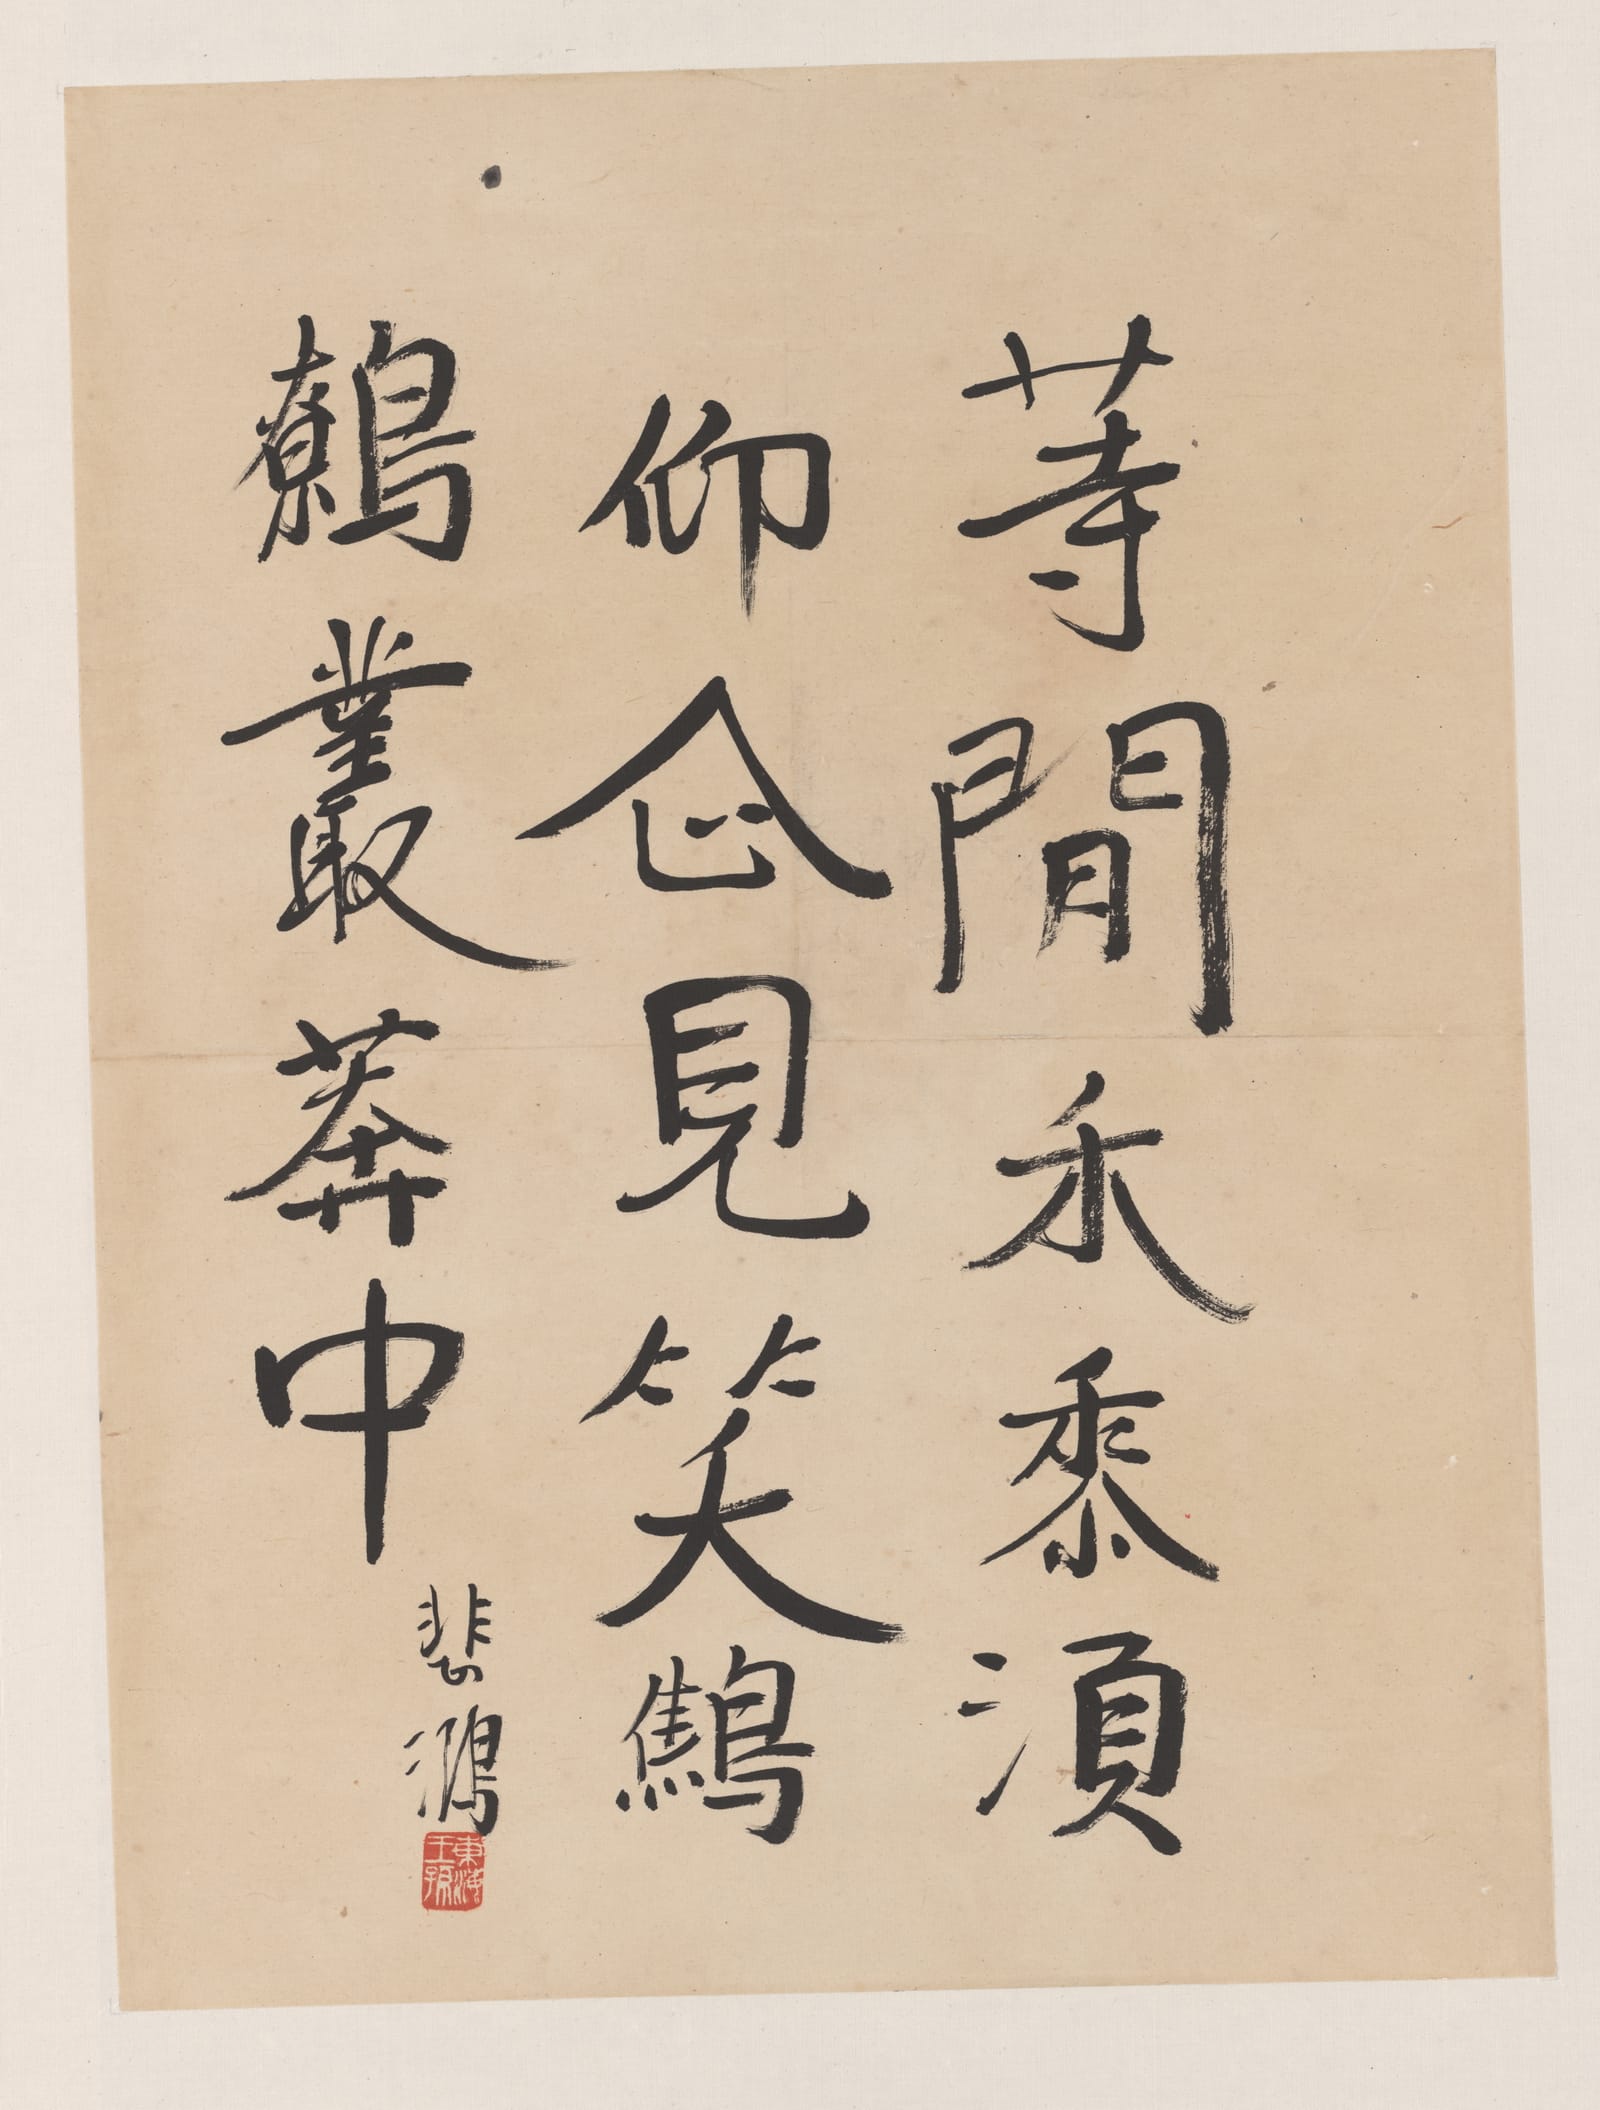 等閒禾黍須
仰企見笑鷦
鷯叢莽中
悲鴻
東海
王孫